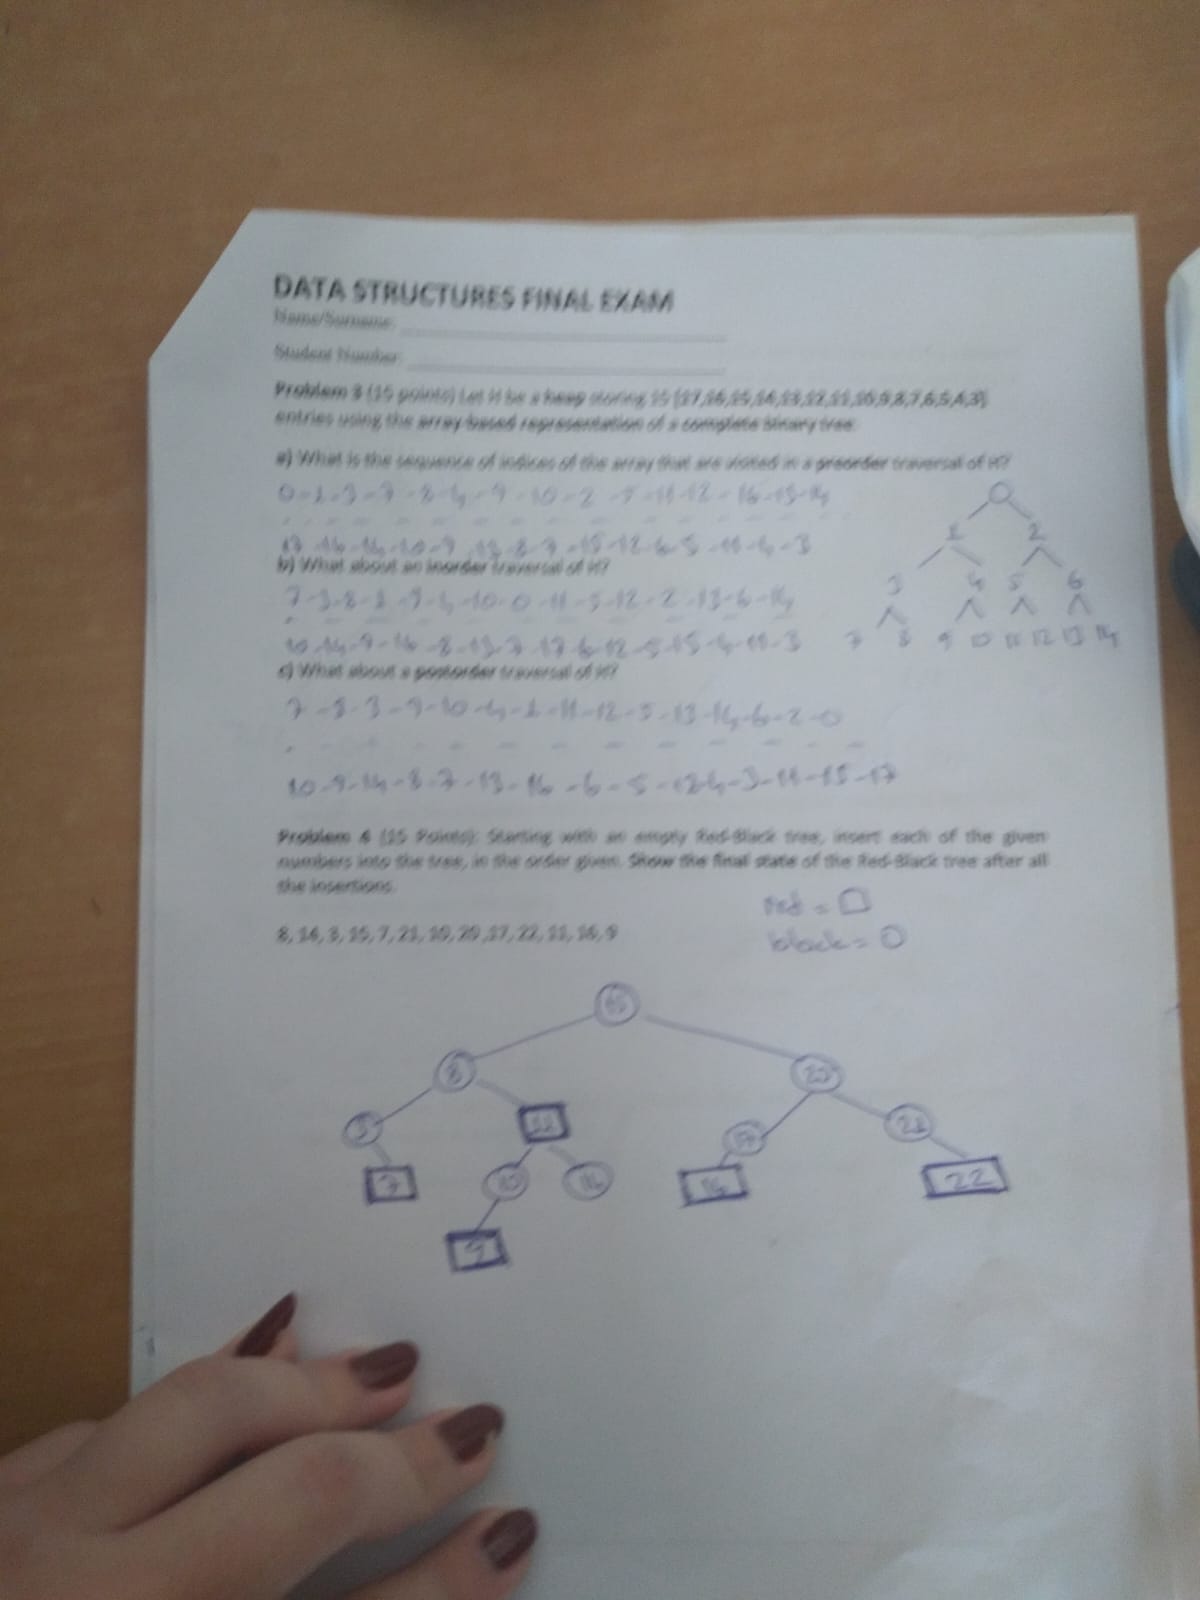 DATA STRUCTURES FINAL EXAM
Name/Surname:
Student Number:
Problem 3 (15 points) Let H be a heap storing 15 {17,16,15,14,13,12,11,10,9,8,7,6,5,4,3}
entries using the array-based representation of a complete binary tree.
a) What is the sequence of indices of the array that are visited in a preorder traversal of H?
0-1-3-7-8-4-9-10-2-5-11-12-
17-16-14-10-9-13-8-7-15-12-6-5-11-4-3
b) What about an inorder traversal of H?
7-3-8-1-9-4-10-0-11-5-12-2-13-6-14
10-14-9-16-8-13-7-17-6-12-5-15-4-11-3
c) What about a postorder traversal of H?
7-8-3-9-10-4-1-11-12-5-13-14-6-2-0
10-9-14-8-7-13-16-6-5-12-4-3-11-15-17
0
1 2
3 4 5 6
7 8 9 10 11 12 13 14
Problem 4 (15 Points): Starting with an empty Red-Black tree, insert each of the given
numbers into the tree, in the order given. Show the final state of the Red-Black tree after all
the insertions.
red =
black =
8, 14, 3, 15, 7, 21, 10, 20, 17, 22, 11, 16, 9
15
8 20
3 17 21
7 10 14 16 22
9